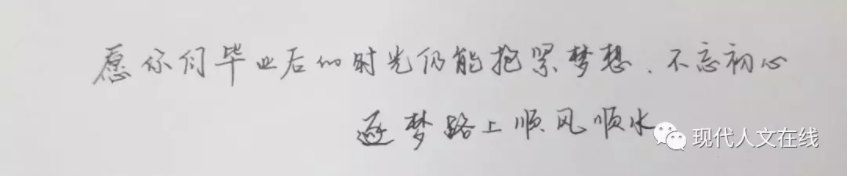 愿你们毕业后的时光仍能抱紧梦想、不忘初心
逐梦路上顺风顺水
现代人文在线